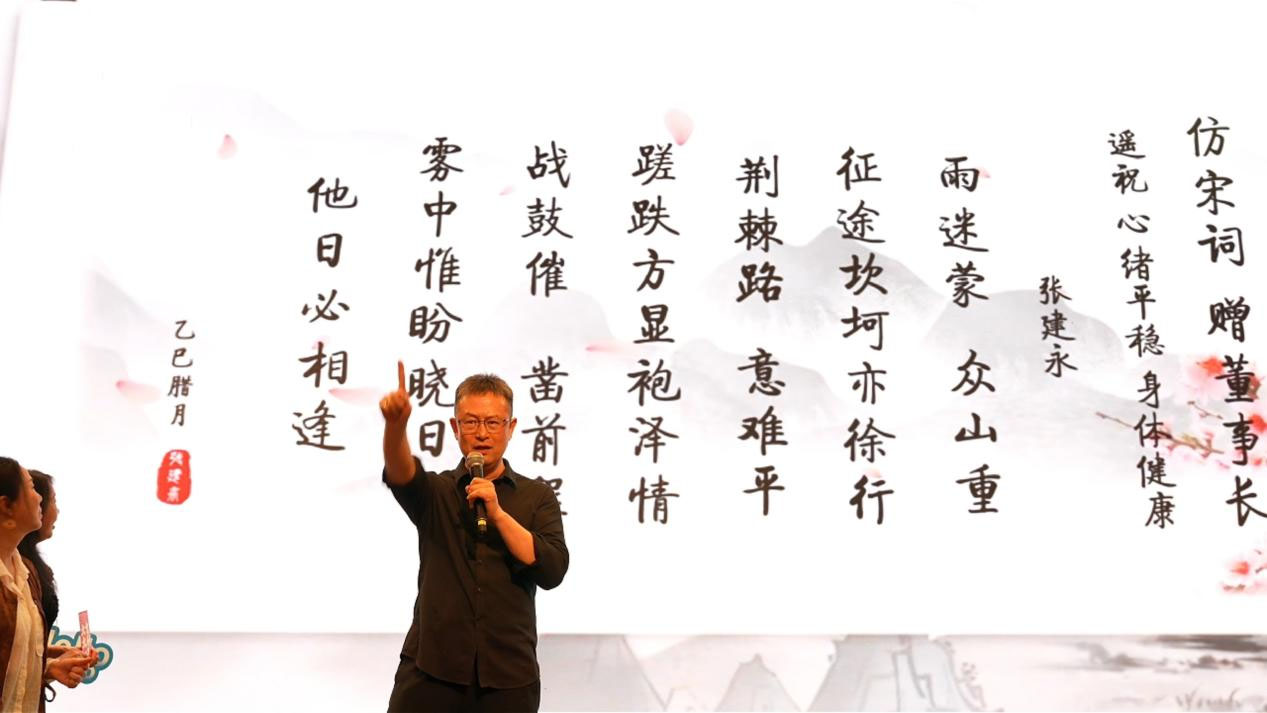 仿宋词 赠董事长
遥祝 心绪平稳 身体健康
张建永
雨迷蒙 众山重
征途坎坷亦徐行
荆棘路 意难平
蹉跌方显袍泽情
战鼓催 凿前
雾中惟盼晓日
他日必相逢
乙巳腊月